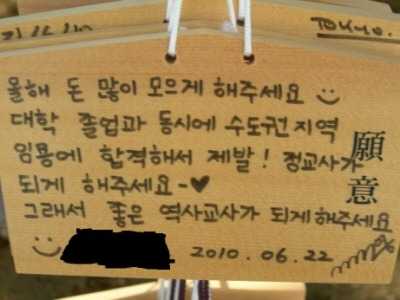 TOKYO.
올해 돈 많이 모으게 해주세요 :)
대학 졸업과 동시에 수도권 지역
임용에 합격해서 제발! 정교사가
되게 해주세요~♥
그래서 좋은 역사교사가 되게해주세요
願意
2010.06.22